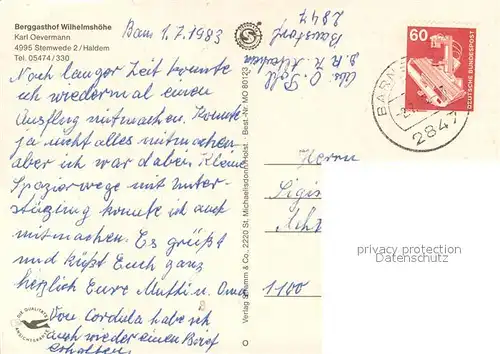 Berggasthof Wilhelmshöhe
Karl Oevermann
4995 Stemwede 2 / Haldem
Tel. 05474/330
1.7.1983
Noch langer Zeit konnte
ich wiedermal einen
Ausflug mitmachen. Konnte
ja nicht alles mitmachen
aber ich war dabei. Kleine
Spazierwege mit Unter-
stüzung konnte ich auch
mitmachen. Es grüßt
und küßt Euch ganz
herzlich Eure Mutti u. Oma
Von Cordula habe ich
auch wieder einen Brief
erhalten.
DIE QUALITÄTS
ANSICHTSKARTE
Verlag Schramm & Co., 2220 St. Michaelisdonn/Holst · Best.-Nr. MO 80123
2847
60
DEUTSCHE BUNDESPOST
2847
Herrn
1100
privacy protection